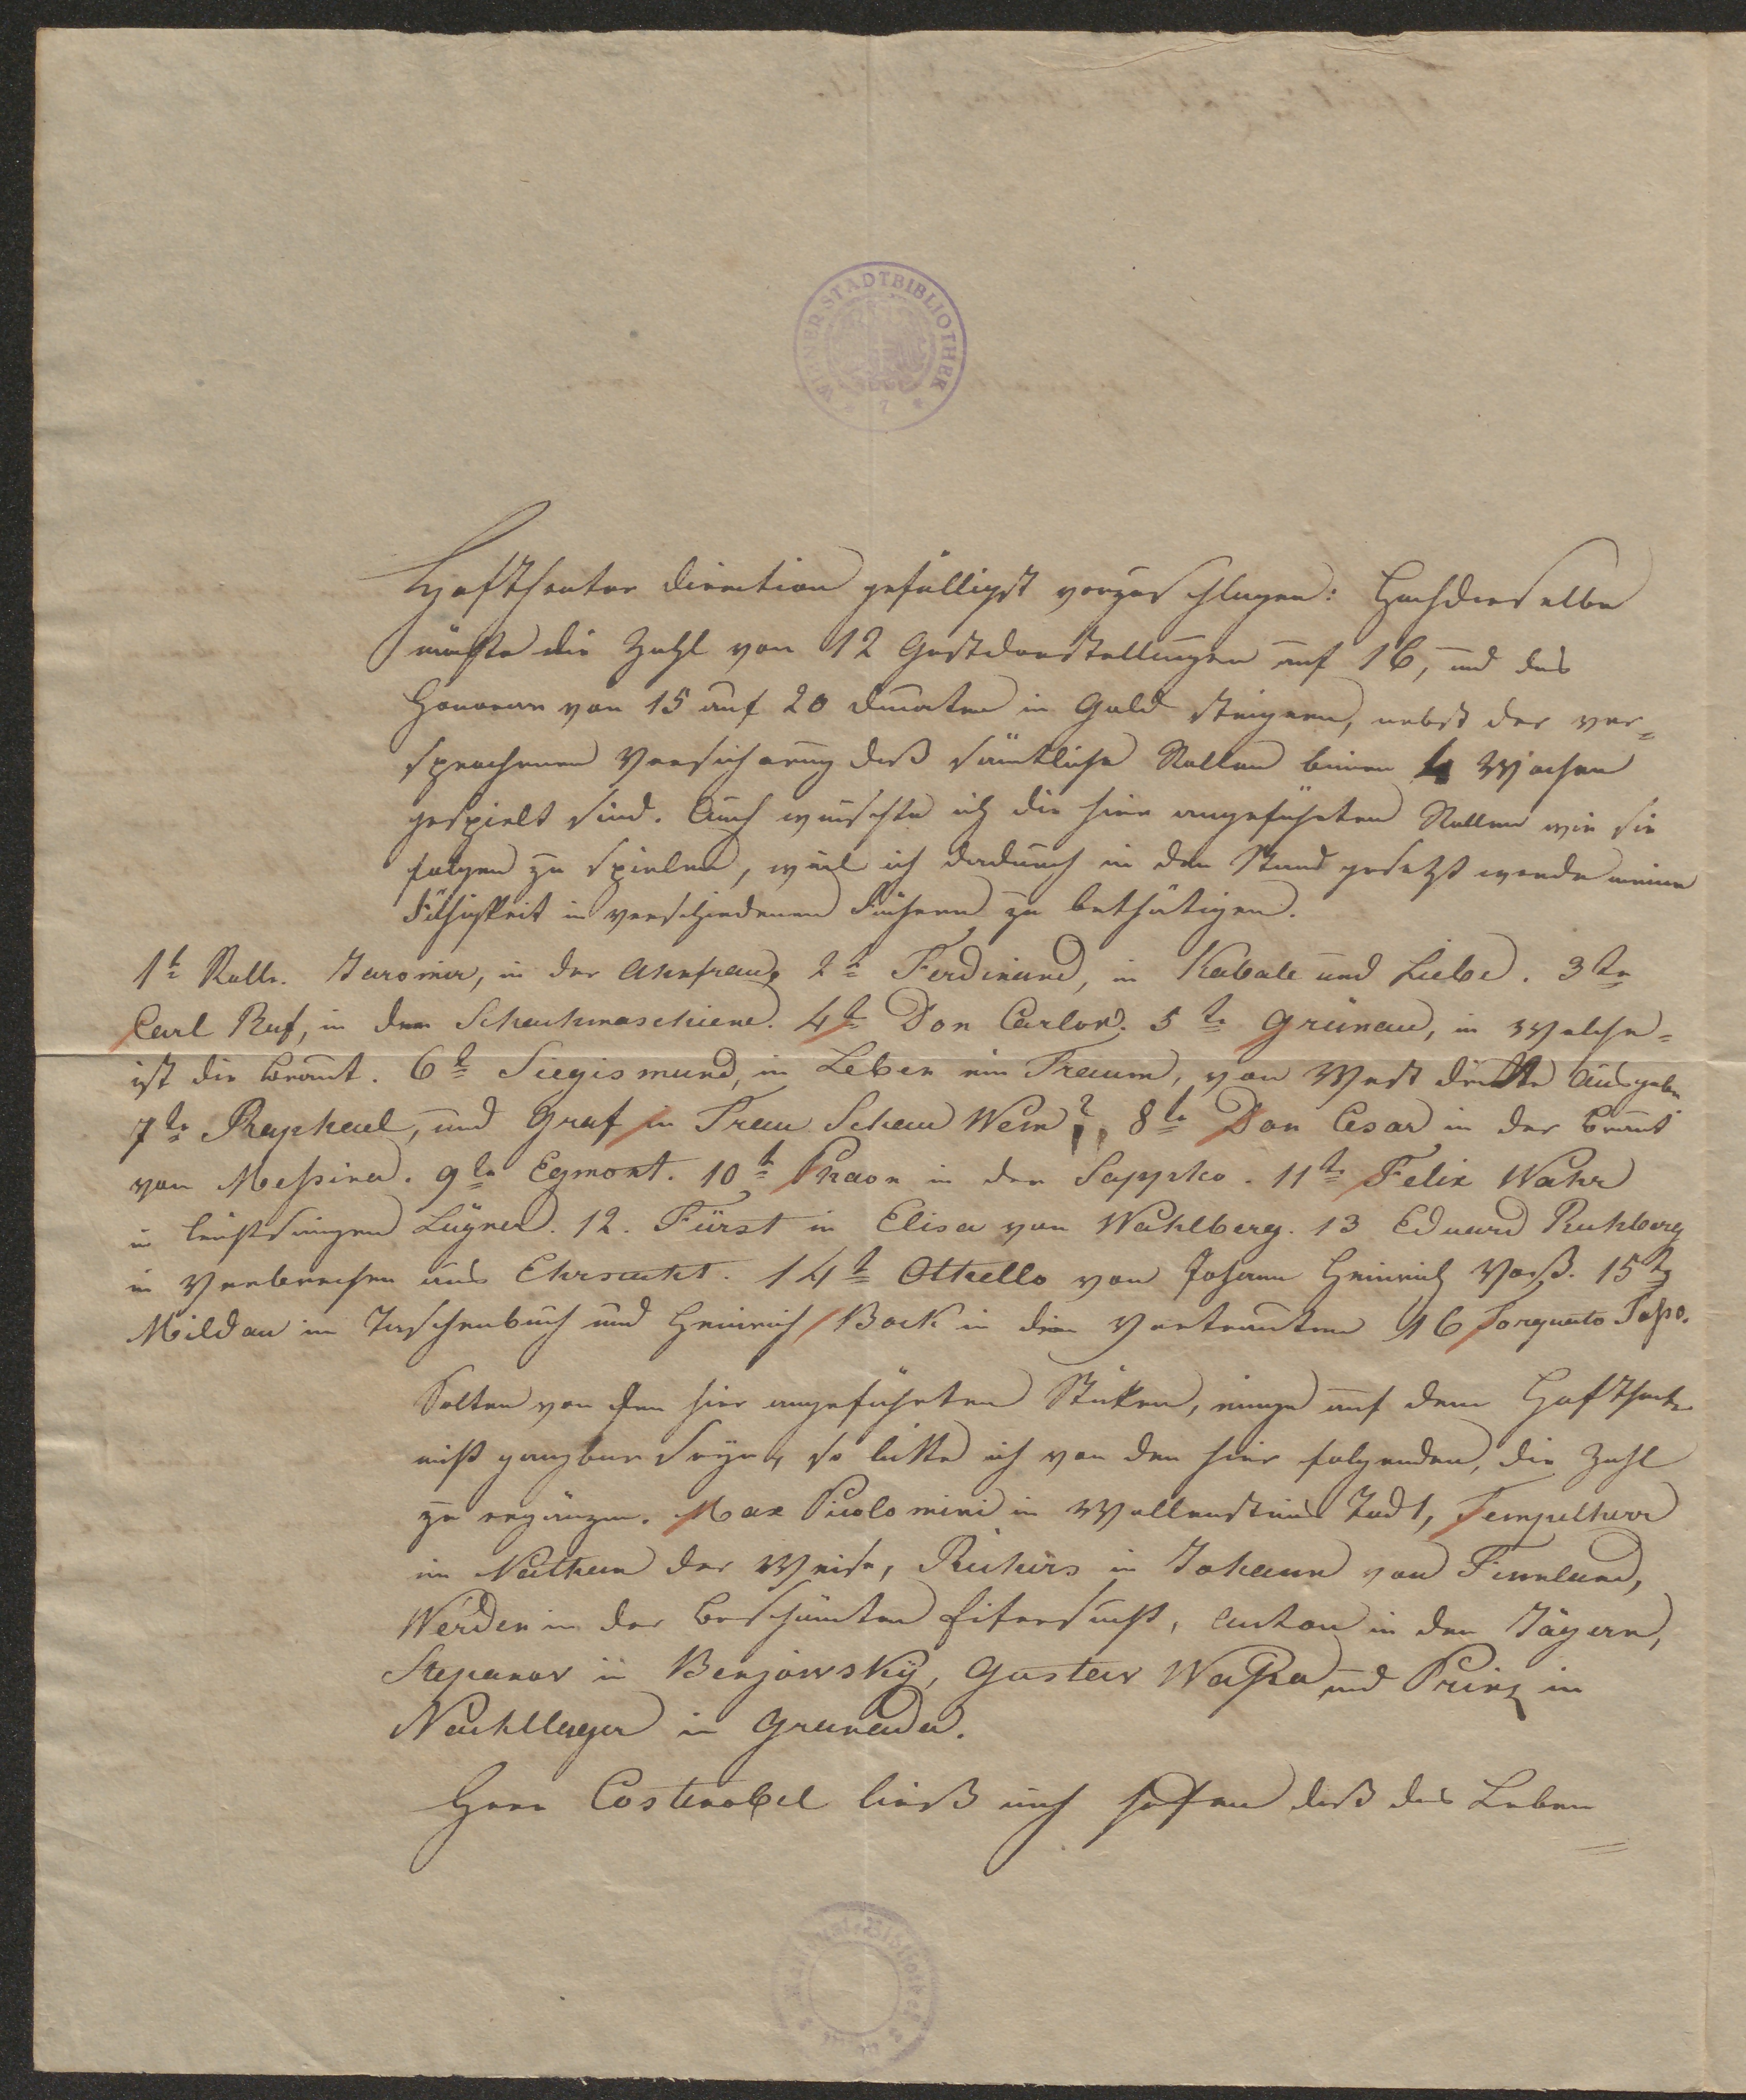 WIENER STADTBIBLIOTHEK
7
Hoftheater direction gefälligst vorzuschlagen: Hochdieselbe
müßte die Zahl von 12 Gastdarstellungen auf 16, und das
Honorar von 15 auf 20 Ducaten in Gold steigern, nebst der ver=
sprochenen Versicherung daß sämtliche Rollen binnen 4 Wochen
gespielt sind. Auch wünschte ich die hier angeführten Rollen wie sie
folgen zu spielen, weil ich dadurch in den Stand gesetzt werde meine
Fähigkeit in verschiedenen Fächern zu bethätigen.
1te Rolle. Jaromir, in der Ahnfrau, 2te Ferdinand, in Kabale und Liebe. 3te
Carl Ruf, in der Schachmaschiene. 4te Don Carlos. 5te Grünau, in Welche=
ist die Braut. 6te Siegismund, in Leben ein Traum, von West dritte Ausgabe
7te Raphael, und Graf in Trau Schau Wem? 8te Don Cesar in der Braut
von Meßina. 9te Egmont. 10te Phaon in der Sappho. 11te Felix Wahr
in leichtsinigen Lügner. 12. Fürst in Elisa von Wahlberg. 13 Eduard Ruhberg
in Verbrechen aus Ehrsucht. 14te Othello von Johann Heinrich Voß. 15te
Mildau im Taschenbuch und Heinrich Bock in den Vertrauten 16 Torquato Taßo.
Solten von den hier angeführten Stüken, einige auf dem Hoftheater
nicht gangbar seyn, so bitte ich von den hier folgenden, die Zahl
zu ergänzen. Max Picolomini in Wallensteins Tod, Tempelherr
im Nathan der Weise, in Johann von Finnland,
Werden in der beschämten Eifersucht, Anton in den Jägern,
Stepanov in Benjowsky, Gustav Waßa und Prinz in
Nachtlager in Granada.
Herr Costenobel ließ mich hoffen daß das Leben